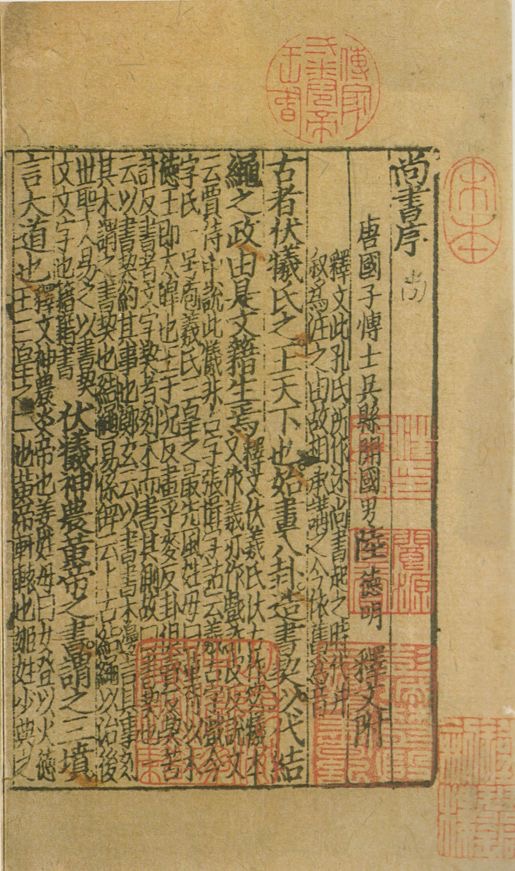 尚書序 尚
唐國子博士兵縣開國男陸德明 釋文附
釋文此孔氏所作述尚書起之時代并
叙為注之由故相承講之今依舊為音
古者伏犧氏之王天下也始畫八卦造書契以代結
繩之政由是文籍生焉
釋文伏犧氏伏古作虙犧本
又作羲亦作戲許皮反說文
云賈侍中說此犧非古字張揖字詁云羲古字戲今
字氏一号庖羲氏三皇之最先風姓母曰華胥以木
德王即太皞也王于況反畫乎麥反卦俱賣反契苦
計反書者文字契者刻木而書其側故曰書契也一
云以書契約其事也鄭玄云以書書木邊言其事刻
其木謂之書契也結繩易係辭云上古結繩以治後
世聖人易之以書契
文文字也籍籍書
伏犧神農黄帝之書謂之三墳
言大道也
釋文神農炎帝也姜姓母曰女登以火德
王三皇之二也黄帝軒轅也姬姓少典之
傳家